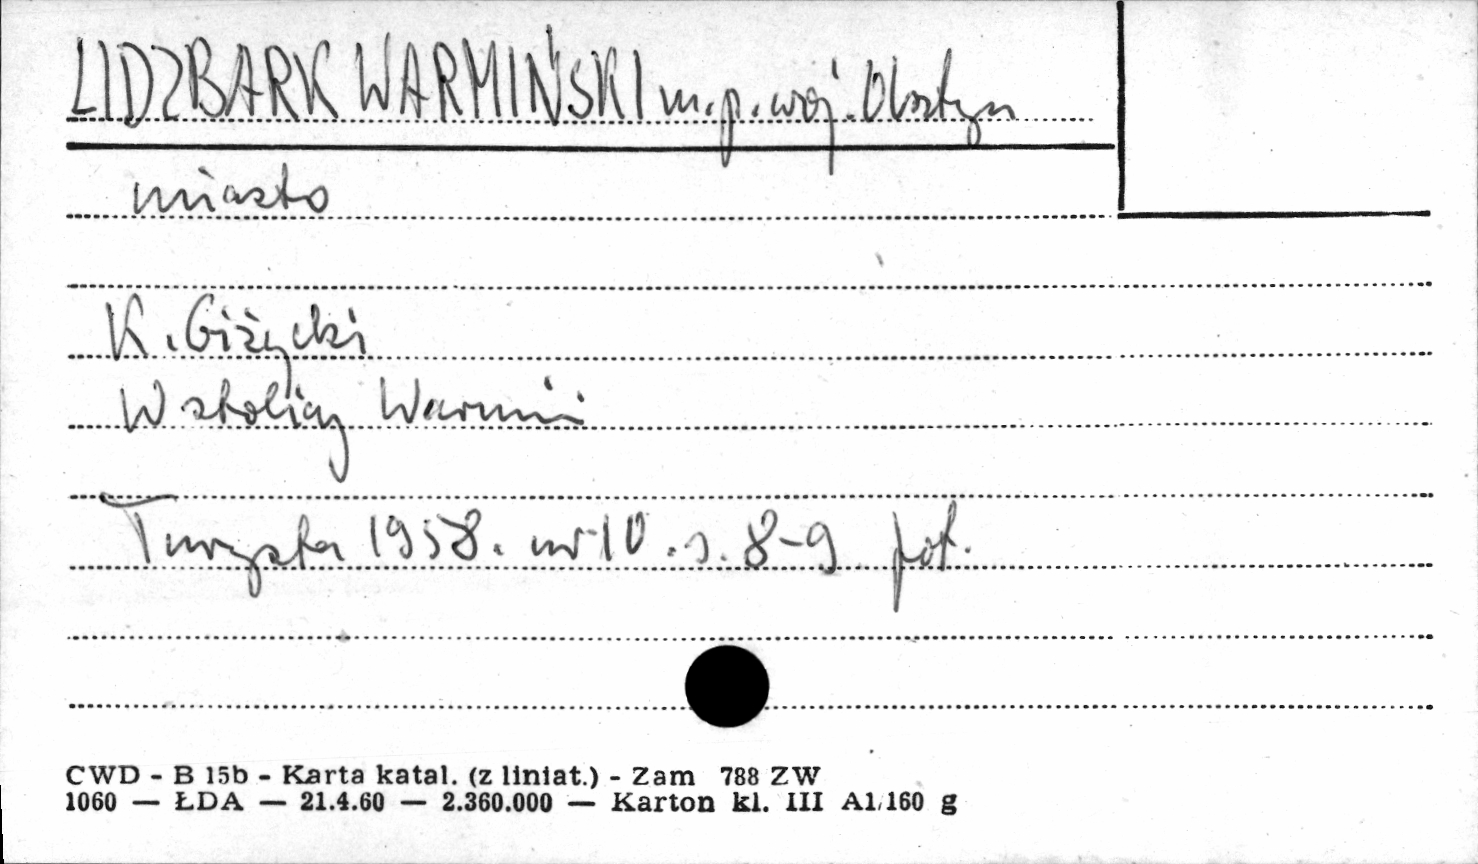 LIDZBARK WARMIŃSKI m.p. woj. Olsztyn
miasto
K. Giżycki
W stolicy Warmii
Turysta 1958. nr 10. s. 8-9 fot.
CWD - B 15b - Karta katal. (z liniat.) - Zam 788 ZW
1060 — ŁDA — 21.4.60 — 2.360.000 — Karton kl. III A1/160 g